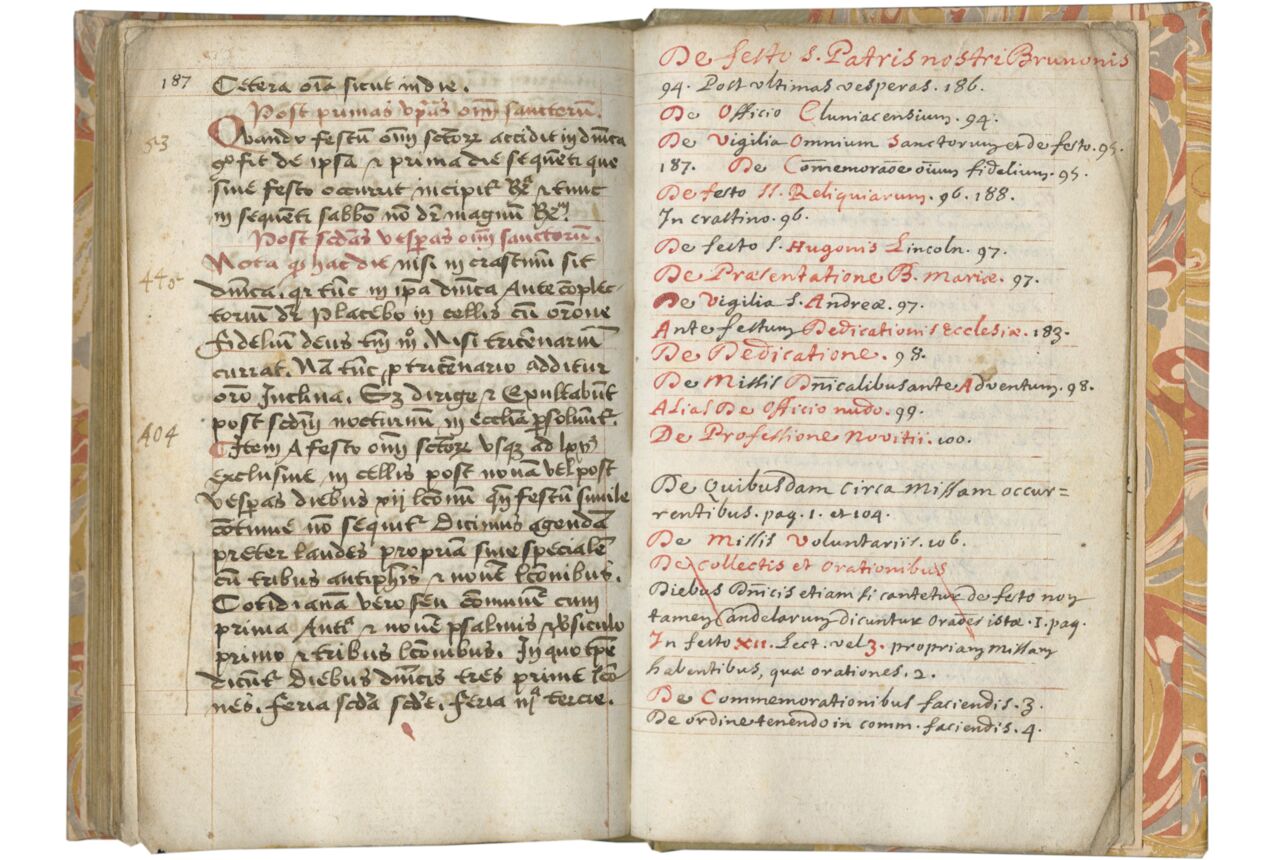 187
Cetera oīa sicut in die.
Post primas vp̄as oīm sanctorum.
53
Quando festū oīm sctōrꝝ accidit in dnīca
gͦ fit de ipsa ⁊ prima die sequenti que
sine festo occurrit incipitʳ ⁊ tunc
in sequenti sabbō nō dʳ magnum
Post scdās vesperas oīm sanctorum.
Nota qͥ hac die nisi in crastinū sit
445
dnīca. qr tūc in ip̄a dnīca Ante cōplec-
torium dʳ Placebo in cellis cū orōne
fideliū deus tm̄ Nisi tricenarium
currat. Nā tūc ꝓ tricenario additur
orō Inclina. Sꝫ dirige ⁊ Exultabūt
post scdm̄ nocturnum in ecclīa ꝑsoluūtʳ.
404
Item A festo oīm sctōrꝝ vsqꝫ ad
exclusiue in cellis post nonā vel post
vesp̄as diebus xij lcōnū qn̄ festū simile
cōtinue nō sequitʳ Dicimus agendā
preter laudes propriā siue specialē
cū tribus antiphīs ⁊ nouē lcōnibus.
Cotidianā vero seu cōmunē cum
prima Antᵃ ⁊ nouē psalmis ⁊ v̄siculo
primo ⁊ tribus lcōnibus. In quo tp̄e
dicūtʳ Diebus dnīcis tres prime lcō
nes. feria scdā scdē. feria iijᵃ tercie.
De festo S. Patris nostri Brunonis
94. Post vltimas vesperas. 186.
De Officio Cluniacensium. 94.
De Vigilia Omnium Sanctorum et de festo. 95.
187. De Cōmemoraōe oīum fidelium. 95.
De festo SS. Reliquiarum. 96. 188.
In crastino. 96.
De festo S. Hugonis Lincoln. 97.
De Præsentatione B. Mariæ. 97.
De Vigilia S. Andreæ. 97.
Ante festum Dedicationis Ecclesiæ. 183.
De Dedicatione. 98.
De Missis Dn̄icalibus ante Adventum. 98.
Alias De Officio nudo. 99.
De Professione Novitii. 100.
De Quibusdam circa Missam occur=
rentibus. pag. 1. et 104.
De Missis Voluntariis. 106.
De collectis et orationibus
Diebus Dn̄icis etiam si cantetur de festo non
tamen Candelarum dicuntur oraōes istæ. 1. pag.
In festo XII. Lect. vel 3. propriam Missam
habentibus, quæ orationes. 2.
De Commemorationibus faciendis. 3.
De ordine tenendo in comm. faciendis. 4.